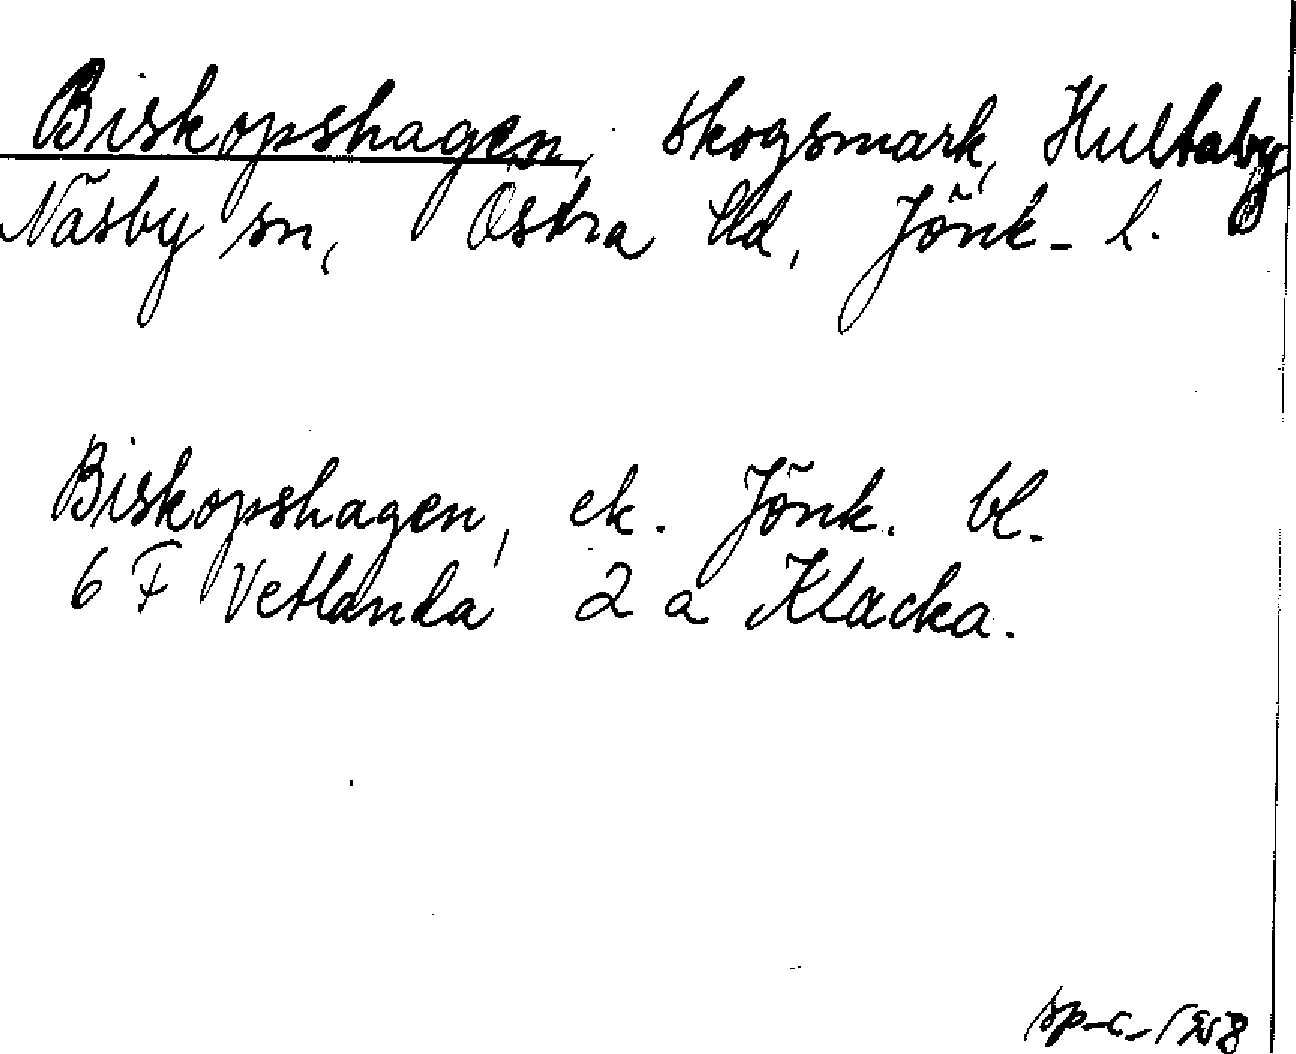 Biskopshagen, skogsmark, Hultaby
Näsby sn, Östra hd, Jönk. l.
Biskopshagen, ek. Jönk. bl.
6 F Vetlanda 2 a Klacka.